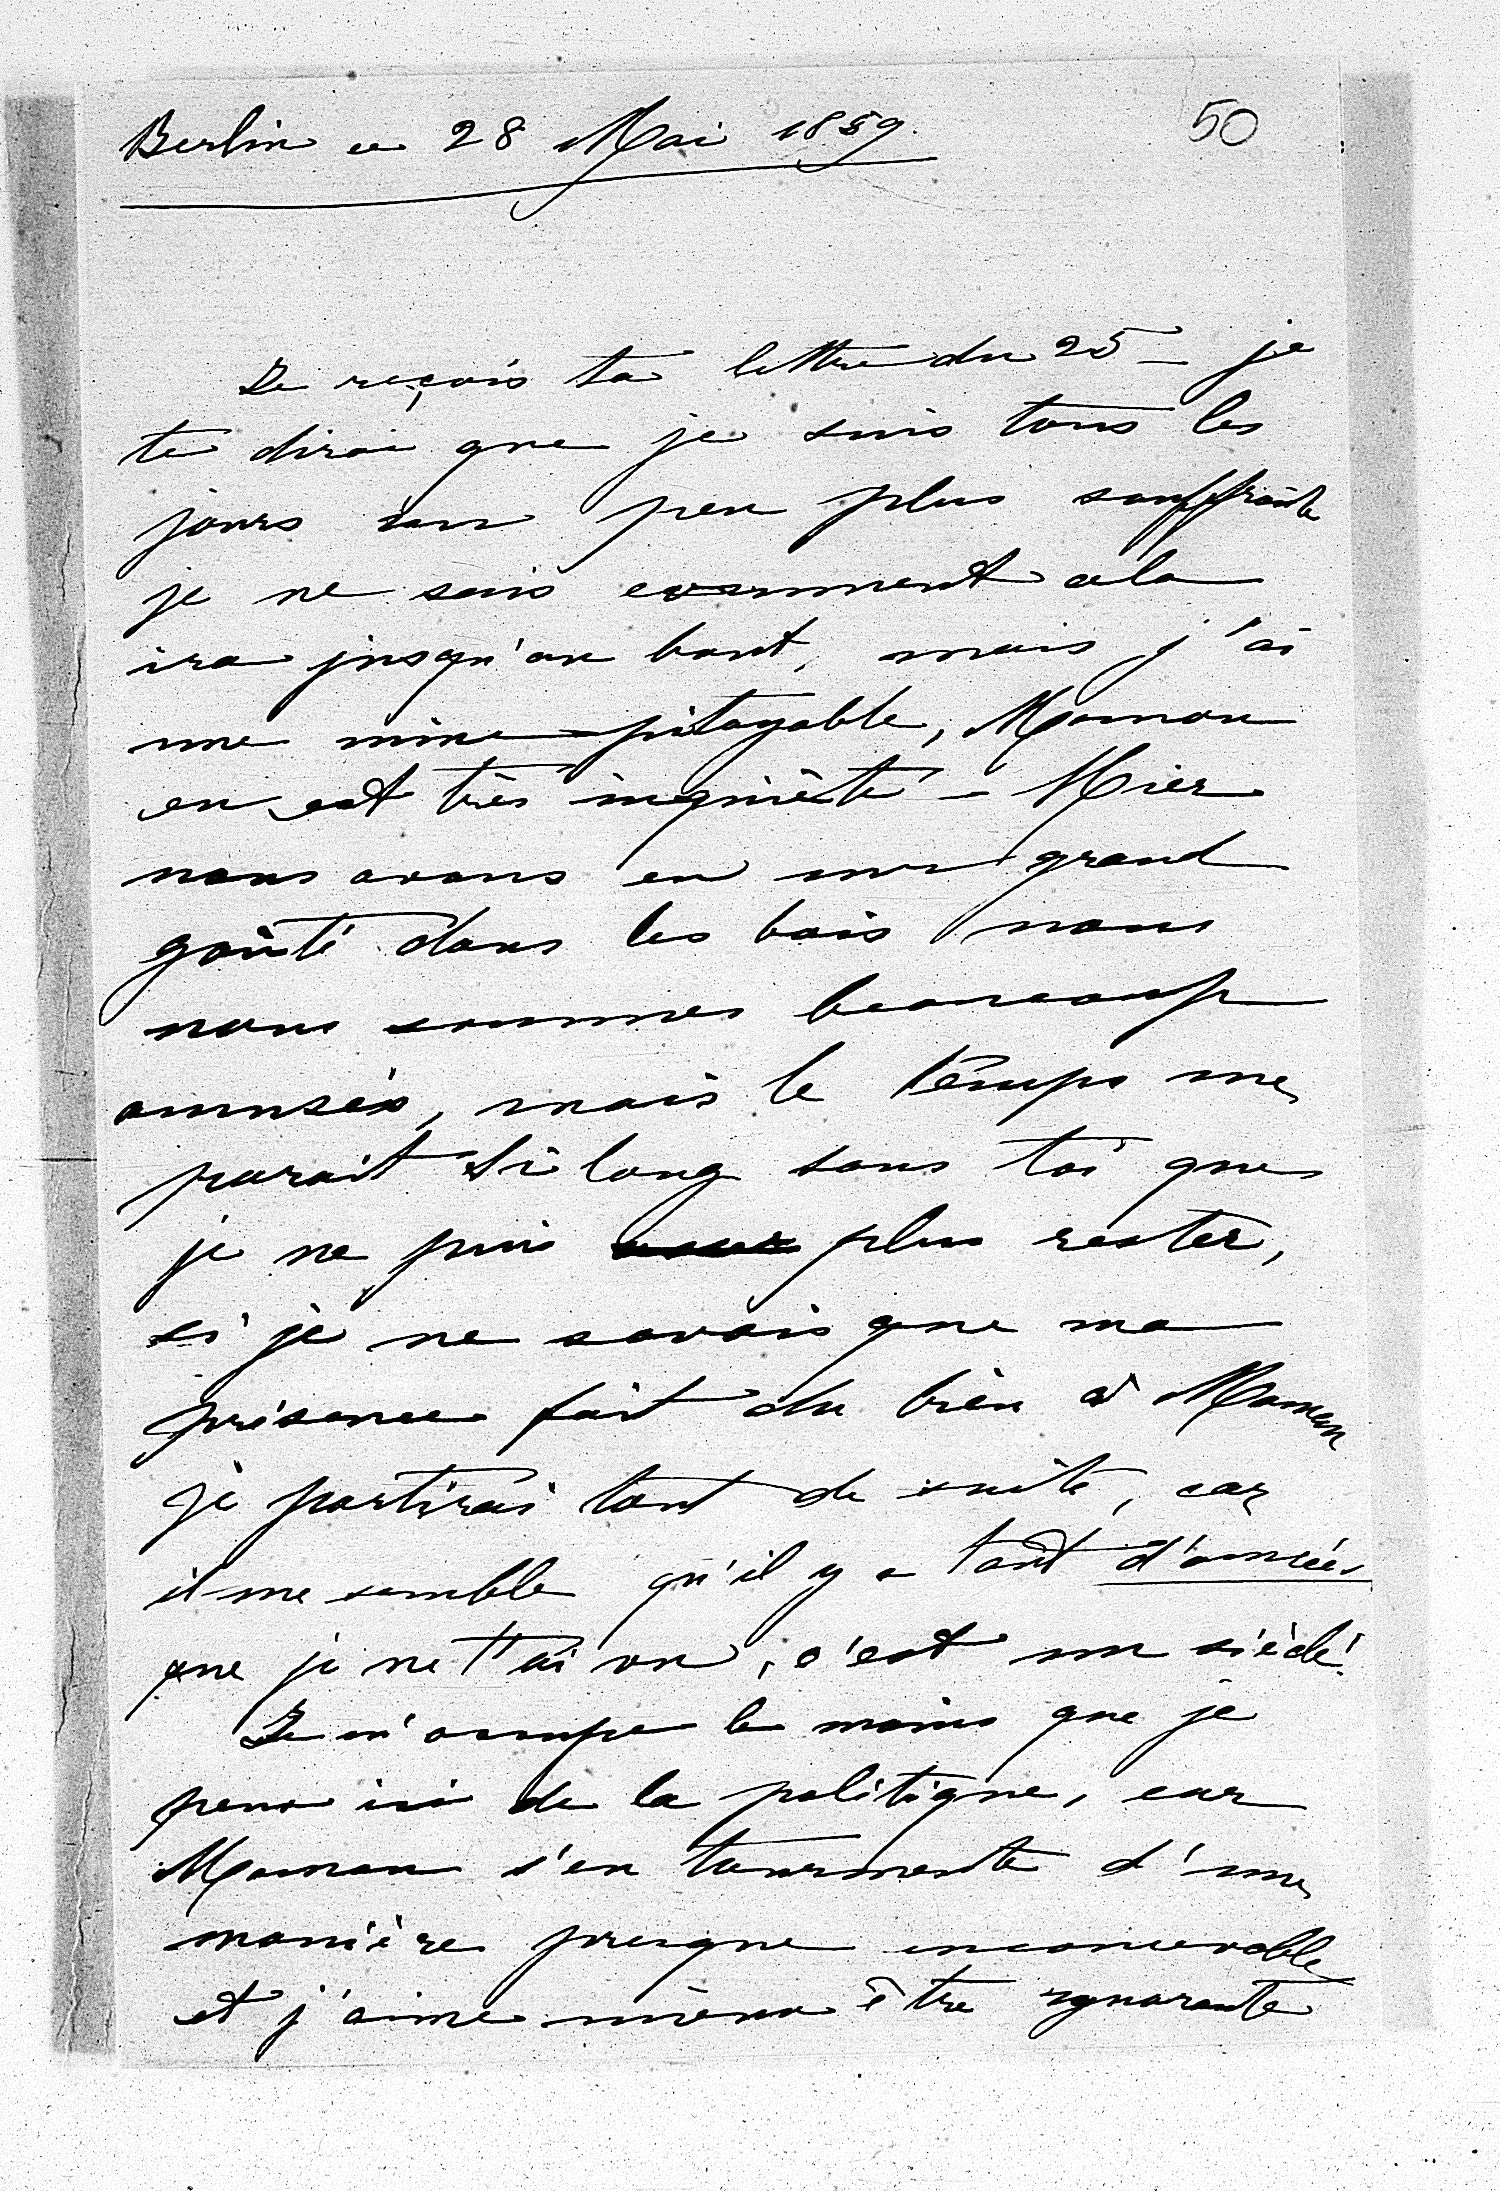 Berlin ce 28 Mai 1859.
50
Je reçois ta lettre du 25 – je
te dirai que je suis tous les
jours un peu plus souffrante
je ne sais comment cela
ira jusqu'au bout, mais j'ai
une mine pitoyable, Maman
en est très inquiète – Hier
nous avons eu un grand
goûté dans les bois nous
nous sommes beaucoup
amusés, mais le temps me
parait si long sans toi que
je ne puis plus rester,
si je ne savais que ma
présence fait du bien à Maman
je partirais tout de suite, car
il me semble qu'il y a tant d'années
que je ne t'ai vu, c'est un siècle!
Je m'occupe le moins que je
peux ici de la politique, car
Maman s'en tourmente d'une
manière presque inconcevable
et j'aime mieux être ignorante